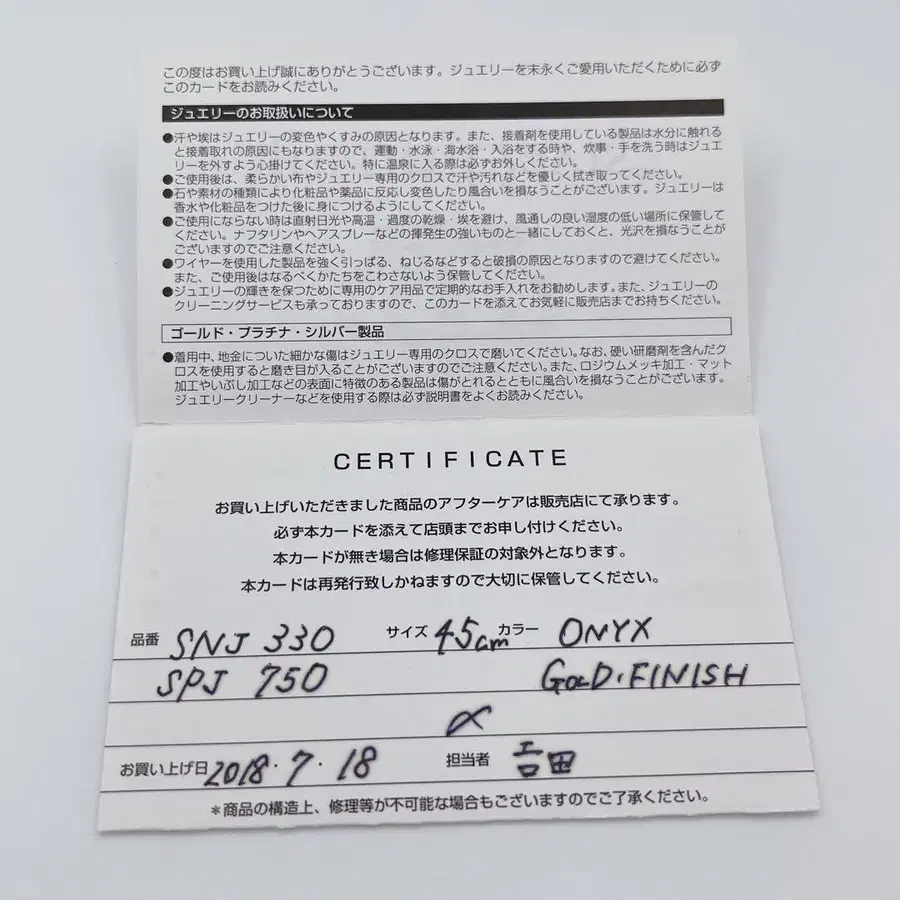 この度はお買い上げ誠にありがとうございます。ジュエリーを末永くご愛用いただくために必ず
このカードをお読みください。
ジュエリーのお取扱いについて
●汗や埃はジュエリーの変色やくすみの原因となります。また、接着剤を使用している製品は水分に触れる
と接着取れの原因にもなりますので、運動・水泳・海水浴・入浴をする時や、炊事・手を洗う時はジュエ
リーを外すよう心掛けてください。特に温泉に入る際は必ずお外しください。
●ご使用後は、柔らかい布やジュエリー専用のクロスで汗や汚れなどを優しく拭き取ってください。
●石や素材の種類により化粧品や薬品に反応し変色したり風合いを損なうことがございます。ジュエリーは
香水や化粧品をつけた後に身につけるようにしてください。
●ご使用にならない時は直射日光や高温・過度の乾燥・埃を避け、風通しの良い湿度の低い場所に保管して
ください。ナフタリンやヘアスプレーなどの揮発生の強いものと一緒にしておくと、光沢を損なうことが
ございますのでご注意ください。
●ワイヤーを使用した製品を強く引っぱる、ねじるなどすると破損の原因となりますので避けてください。
また、ご使用後はなるべくかたちをこわさないよう保管してください。
●ジュエリーの輝きを保つために専用のケア用品で定期的なお手入れをお勧めします。また、ジュエリーの
クリーニングサービスも承っておりますので、このカードを添えてお気軽に販売店までお持ちください。
ゴールド・プラチナ・シルバー製品
●着用中、地金についた細かな傷はジュエリー専用のクロスで磨いてください。なお、硬い研磨剤を含んだク
ロスを使用すると磨き目が入ることがございますのでご注意ください。また、ロジウムメッキ加工・マット
加工やいぶし加工などの表面に特徴のある製品は傷がとれるとともに風合いを損なうことがございます。
ジュエリークリーナーなどを使用する際は必ず説明書をよくお読みください。
CERTIFICATE
お買い上げいただきました商品のアフターケアは販売店にて承ります。
必ず本カードを添えて店頭までお申し付けください。
本カードが無き場合は修理保証の対象外となります。
本カードは再発行致しかねますので大切に保管してください。
品番 SNJ 330 サイズ 45cm カラー ONYX
SPJ 750 GOLD・FINISH
〆
お買い上げ日 2018・7・18 担当者 吉田
*商品の構造上、修理等が不可能な場合もございますのでご了承ください。